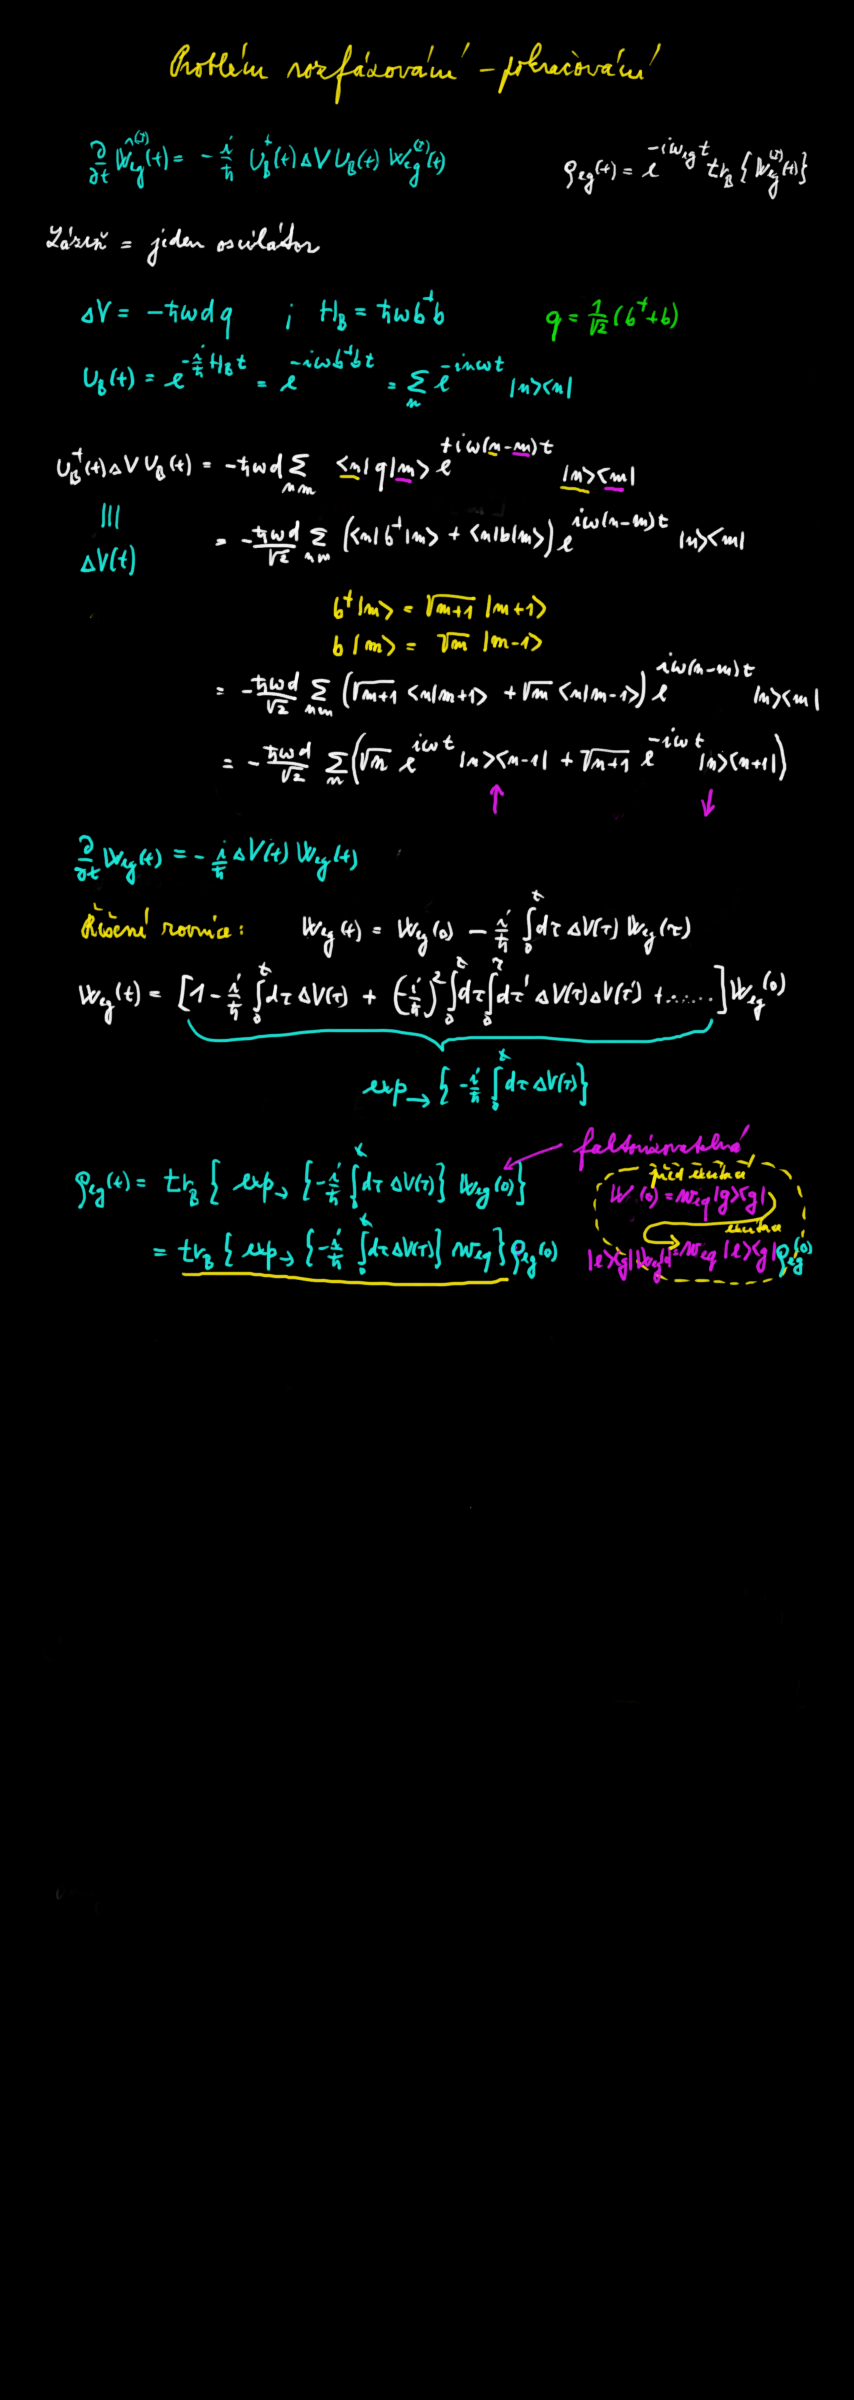 Problém rozfázování – pokračování
∂/∂t Ŵ_eg^(I)(t) = - i/ħ U_B^†(t) ΔV U_B(t) W_eg^(I)(t)
ρ_eg(t) = e^{-iω_eg t} tr_B { W_eg^(I)(t) }
Lázeň = jeden oscilátor
ΔV = -ħωd q ; H_B = ħω b^†b
q = 1/√2 (b^† + b)
U_B(t) = e^{-i/ħ H_B t} = e^{-iω b^†b t} = Σ_n e^{-inωt} |n><n|
U_B^†(t) ΔV U_B(t) = -ħωd Σ_{nm} <n|q|m> e^{+iω(n-m)t} |n><m|
|||
ΔV(t)
= - ħωd/√2 Σ_{nm} (<n|b^†|m> + <n|b|m>) e^{iω(n-m)t} |n><m|
b^†|m> = √(m+1) |m+1>
b|m> = √m |m-1>
= - ħωd/√2 Σ_{nm} (√(m+1) <n|m+1> + √m <n|m-1>) e^{iω(n-m)t} |n><m|
= - ħωd/√2 Σ_n (√n e^{iωt} |n><n-1| + √(n+1) e^{-iωt} |n><n+1|)
↑ ↓
∂/∂t W_eg(t) = - i/ħ ΔV(t) W_eg(t)
Řešení rovnice: W_eg(t) = W_eg(0) - i/ħ ∫_0^t dτ ΔV(τ) W_eg(τ)
W_eg(t) = [1 - i/ħ ∫_0^t dτ ΔV(τ) + (-i/ħ)^2 ∫_0^t dτ ∫_0^τ dτ' ΔV(τ) ΔV(τ') + .......] W_eg(0)
exp→ { - i/ħ ∫_0^t dτ ΔV(τ) }
faktorizovatelná
ρ_eg(t) = tr_B { exp→ { - i/ħ ∫_0^t dτ ΔV(τ) } W_eg(0) }
před excitací
W(0) = w_eq |g><g|
excitace
= tr_B { exp→ { - i/ħ ∫_0^t dτ ΔV(τ) } w_eq } ρ_eg(0)
|e><g| W_eg(0) = w_eq |e><g| ρ_eg(0)